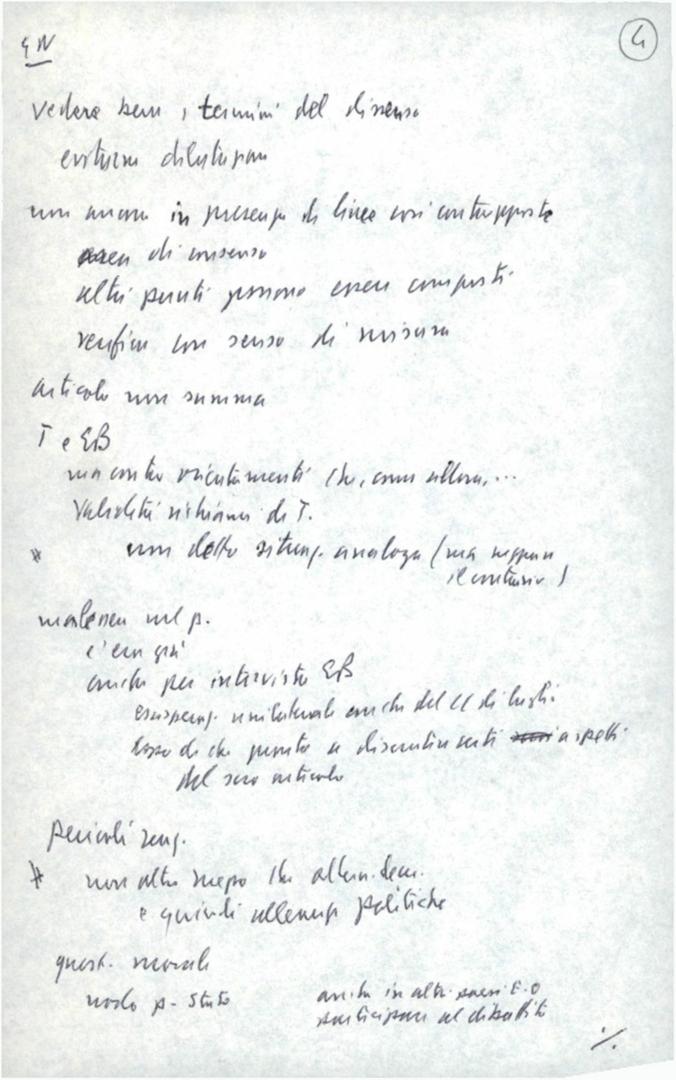 GN
4
vedere bene i termini del dissenso
evitare dilatazioni
non ancora in presenza di linee così contrapposte
di consenso
altri punti possono essere composti
verifica con senso di misura
articolo non summa
T e EB
ma contro orientamenti che, come allora,...
Validità richiamo di T.
* non detto situaz. analoga (ma neppure
il contrario)
malessere nel p.
c'era già
anche per intervista EB
unilaterale anche del CC di luglio
di che punto a discutere certi aspetti
del suo articolo
pericoli
* non altro mezzo che altern. dem.
e quindi alleanze politiche
quest. morale
nodo p-Stato
anche in altri paesi E.O
partecipare al dibattito
./.